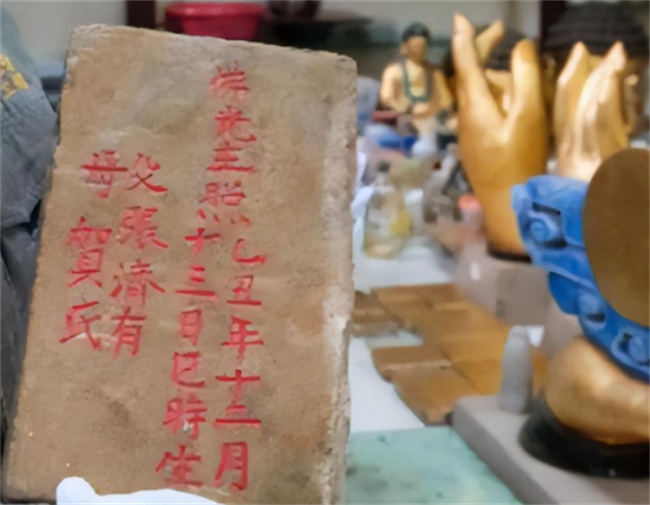 佛光主照乙丑年十二月
十三日巳時生
父張濟有
母賀氏